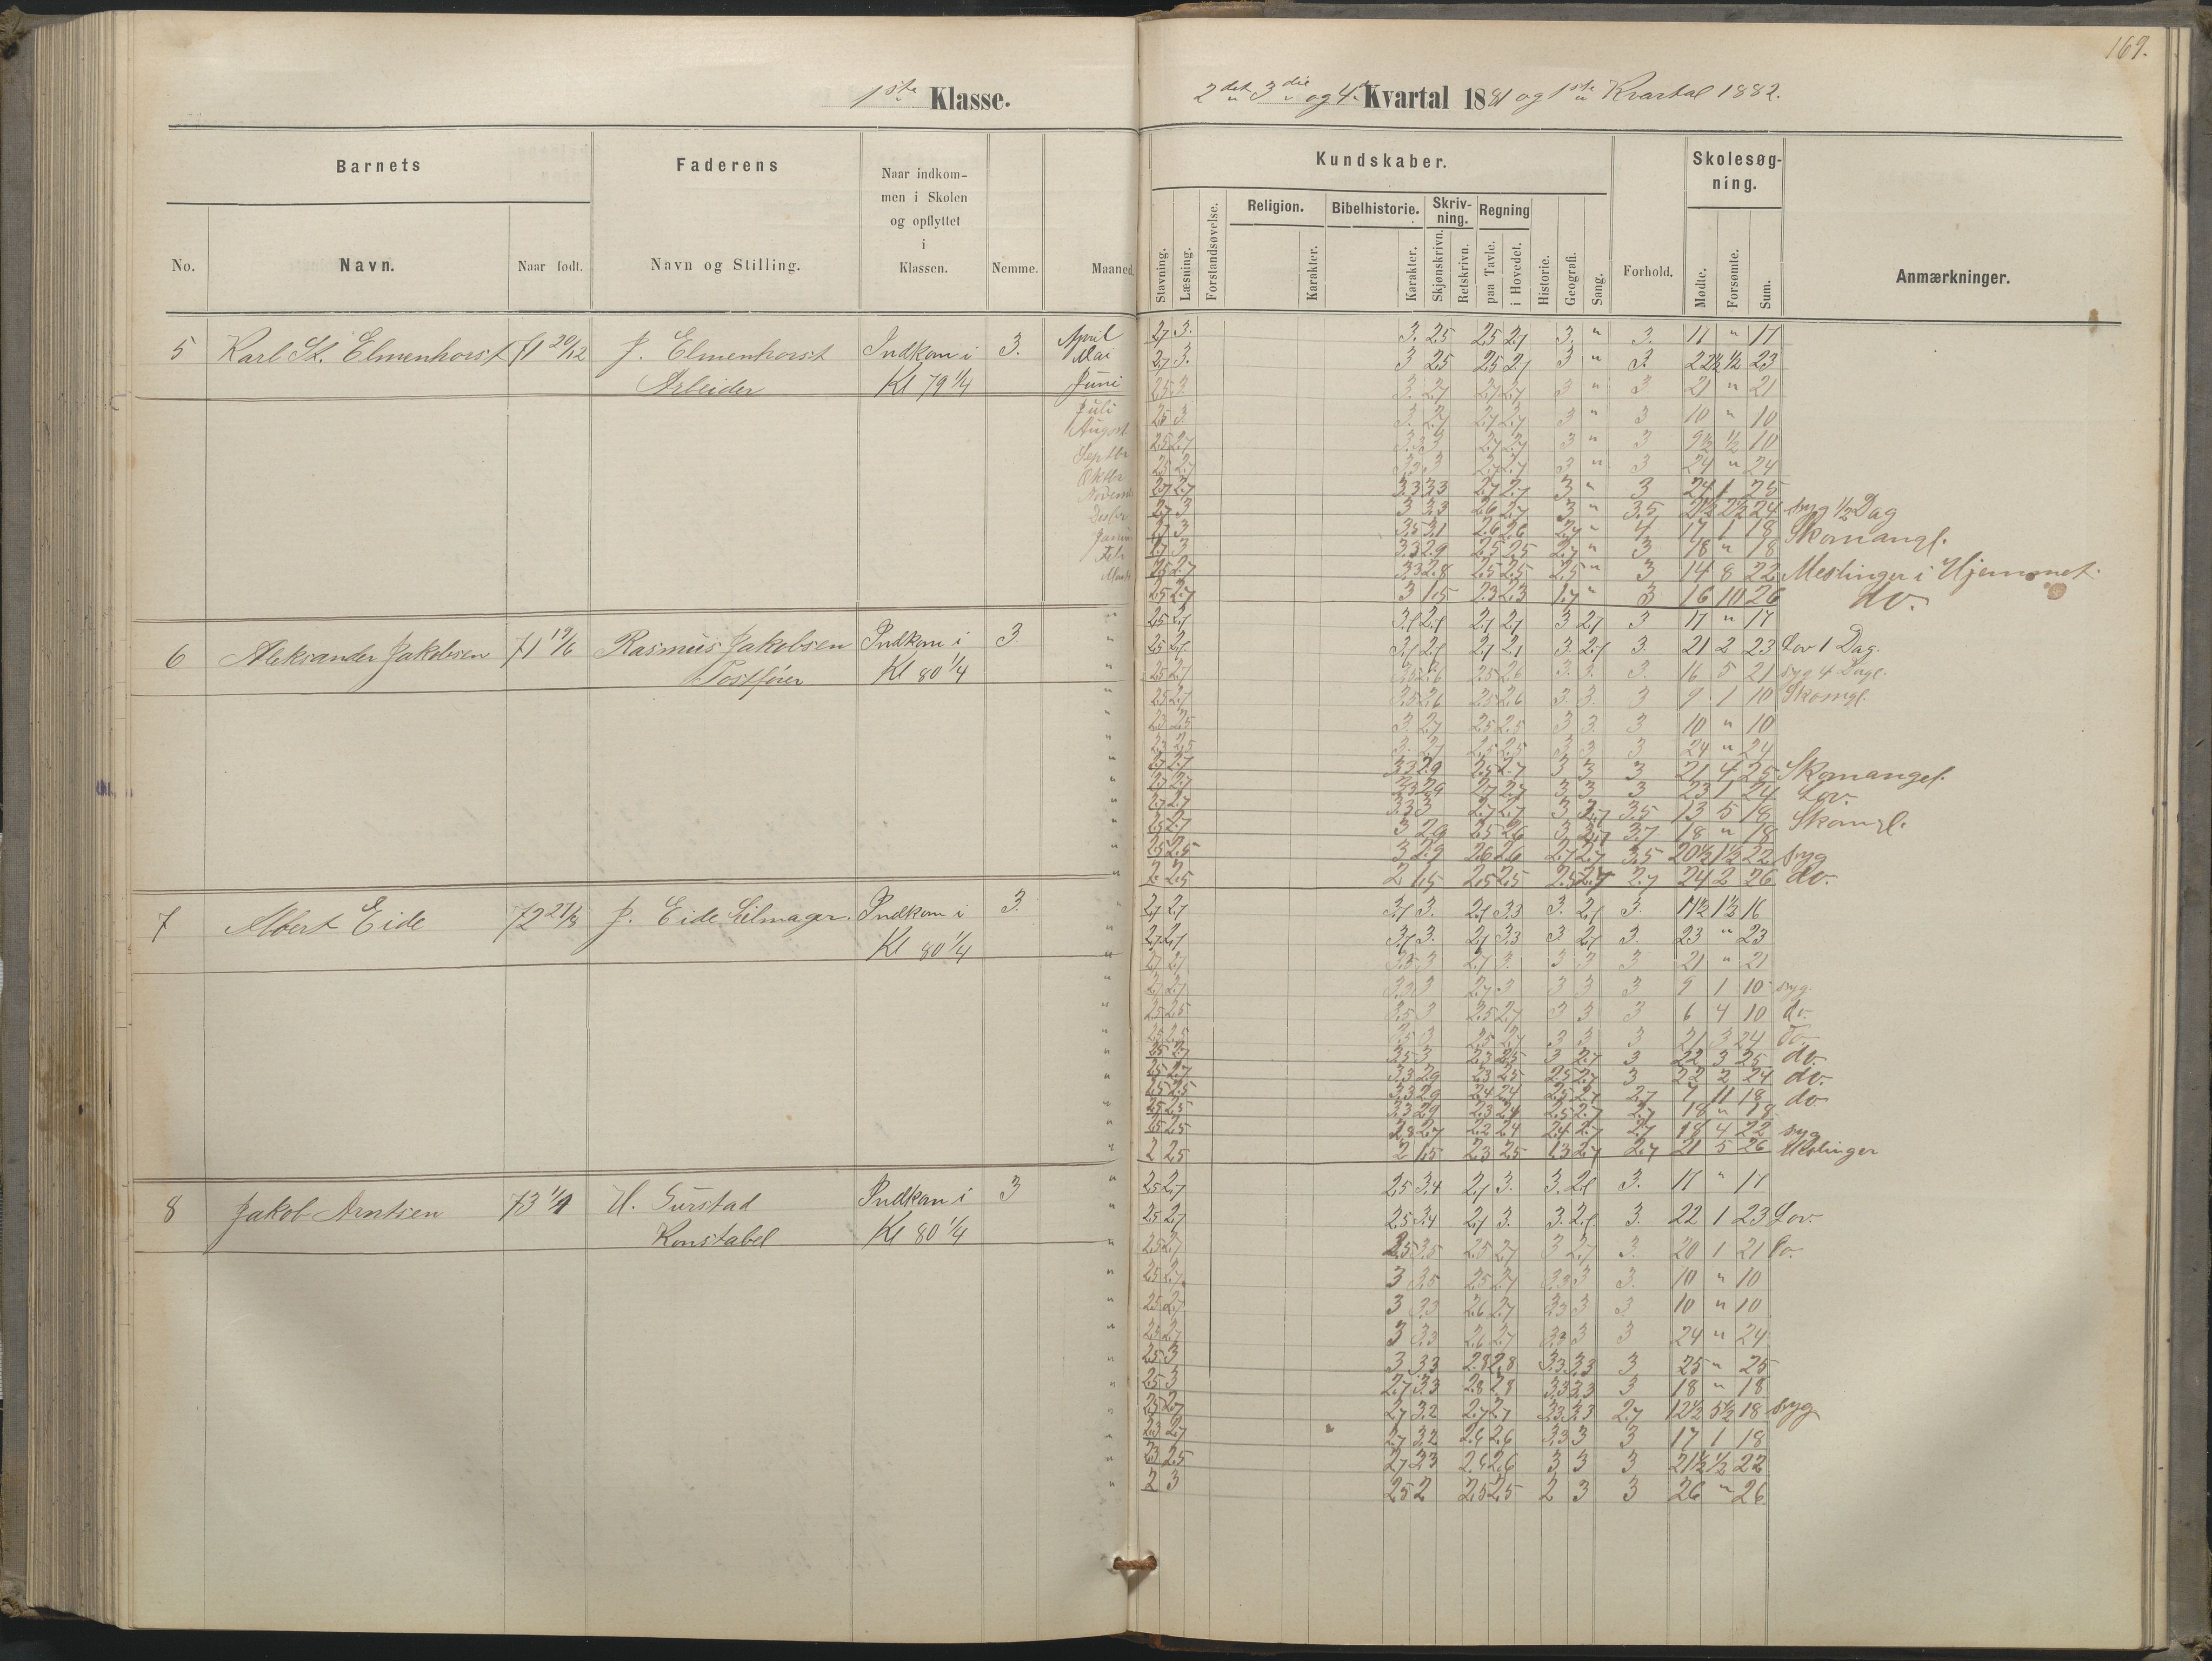 169.
1ste Klasse.
2det 3die og 4de Kvartal 1881 og 1ste Kvartal 1882.
Barnets
Faderens
Naar indkom-
men i Skolen
og opflyttet
i
Klassen.
No.
Navn.
Naar født.
Navn og Stilling.
Nemme.
Maaned.
Kundskaber.
Skolesøg-
ning.
Stavning.
Læsning.
Forstandsøvelse.
Religion.
Karakter.
Bibelhistorie.
Karakter.
Skriv-
ning.
Skjønskrivn.
Retskrivn.
Regning
paa Tavle.
i Hovedet.
Historie.
Geografi.
Sang.
Forhold.
Mødte.
Forsømte.
Sum.
Anmærkninger.
5 Karl St. Elmenhorst 71 20/12 J. Elmenhorst Indkom i 3.
Arbeider Kl 79 1/4
April 2,7 3. 3. 2,5 2,5 2,7 3. " 3. 17 " 17
Mai 2,7 3. 3 2,5 2,5 2,7 3 " 3. 22½ ½ 23
Juni 2,5 3. 3. 2,7 2,7 2,7 3 " 3 21 " 21
Juli 2,5 3 3. 2,7 2,7 2,7 3 " 3 10 " 10
August 2,5 2,7 3,3 3 2,7 2,7 3 " 3 9½ ½ 10
Septbr 2,5 2,7 3,3 3 2,7 2,7 3 " 3 24 " 24
Oktbr 2,7 2,7 3,3 3,3 2,7 2,7 3 " 3 24 1 25
Novembr 2,7 3 3 3,3 2,6 2,7 3 " 3,5 21½ 2½ 24 syg 1/2 Dag
Desbr 2,7 3 3,5 3,1 2,6 2,6 2,7 " 4 17 1 18 Skomangl.
Januar 2,7 3 3,3 2,9 2,5 2,5 2,7 " 3 18 " 18
Febr 2,5 2,7 3,3 2,8 2,5 2,5 2,5 " 3 14 8 22 Meslinger i Hjemmet.
Marts 2,5 2,7 3 1,5 2,3 2,3 1,7 " 3 16 10 26 do.
6 Aleksander Jakobsen 71 19/6 Rasmus Jakobsen Indkom i 3
Postfører Kl 80 1/4
" 2,5 2,7 3,7 2,7 2,7 2,7 3 2,7 3 17 " 17
" 2,5 2,7 3,7 2,7 2,7 2,7 3. 2,7 3. 21 2 23 Lov 1 Dag.
" 2,5 2,7 3,5 2,6 2,5 2,6 3. 3. 3. 16 5 21 syg 4 Dage.
" 2,5 2,7 3,5 2,6 2,5 2,6 3. 3. 3 9 1 10 Skomgl.
" 2,3 2,5 3. 2,7 2,5 2,5 3 3. 3 10 " 10
" 2,3 2,5 3. 2,7 2,5 2,5 3 3 3 24 " 24
" 2,7 2,7 3,3 2,9 2,5 2,7 3 3 3 21 4 25 Skomangel.
" 2,7 2,7 3,3 2,9 2,7 2,7 3 3 3 23 1 24 Lov.
" 2,7 2,7 3,3 3 2,7 2,7 3 2,7 3,5 13 5 18 Skomgl.
" 2,5 2,7 3 2,9 2,5 2,6 3 2,7 3,7 18 " 18
" 2,5 2,5 3 2,9 2,6 2,6 2,7 2,7 3,5 20½ 1½ 22 syg
" 2. 2,5 2 1,5 2,5 2,5 2,5 2,7 2,7 24 2 26 do.
7 Albert Eide 72 27/8 J. Eide Seilmager. Indkom i 3.
Kl 80 1/4
" 2,7 2,7 3,7 3. 2,7 3,3 3. 2,7 3. 1½ 16
" 2,7 2,7 3,7 3. 2,7 3,3 3 2,7 3. 23 " 23
" 2,7 2,7 3,3 3 2,7 3. 3 3 3 21 " 21
" 2,7 2,7 3,3 3 2,7 3 3 3 3 9 1 10 syg.
" 2,5 2,5 3,5 3 2,5 2,7 3 3 3 6 4 10 do.
" 2,5 2,5 3,5 3 2,5 2,7 3 3 3 21 3 24 do.
" 2,5 2,7 3,5 3 2,3 2,5 3 2,7 3 22 3 25 do.
" 2,5 2,7 3,3 2,9 2,3 2,5 2,5 2,7 3 22 2 24 do.
" 2,5 2,5 3,3 2,9 2,4 2,4 2,5 2,7 2,7 7 11 18 do
" 2,5 2,5 3,3 2,9 2,3 2,4 2,5 2,7 2,7 18 " 18
" 2,5 2,5 2,8 2,7 2,2 2,4 2,4 2,7 2,7 18 4 22 syg
" 2 2,5 2 1,5 2,3 2,5 1,3 2,7 2,7 21 5 26 Meslinger
8 Jakob Arntsen 73 1/4 H. Gurstad Indkom i 3
Konstabel Kl 80 1/4
" 2,5 2,7 2,5 3,4 2,7 3. 3. 2,7 3. 17 " 17
" 2,5 2,7 2,5 3,4 2,7 3. 3. 2,7 3. 22 1 23 Lov.
" 2,5 2,7 2,5 3,5 2,5 2,7 3 2,7 3. 20 1 21 Do.
" 2,5 2,7 3 3,5 2,5 2,7 3,3 3 3. 10 " 10
" 2,5 2,7 3 3,3 2,6 2,7 3,3 3 3 10 " 10
" 2,5 2,7 3 3,3 2,6 2,7 3,3 3 3 24 " 24
" 2,5 3 3 3,3 2,8 2,8 3,3 3,3 3 25 " 25
" 2,5 3 2,7 3,3 2,8 2,8 3,3 3,3 3 18 " 18
" 2,5 2,7 2,7 3,2 2,7 2,7 3,3 3,3 2,7 12½ 5½ 18 syg
" 2,3 2,7 2,7 3,2 2,6 2,6 3,3 3 3 17 1 18
" 2,3 2,5 2,7 3,3 2,6 2,6 3 3 3 21½ ½ 22
" 2 3 2,5 2 2,5 2,5 2 3 3 26 " 26